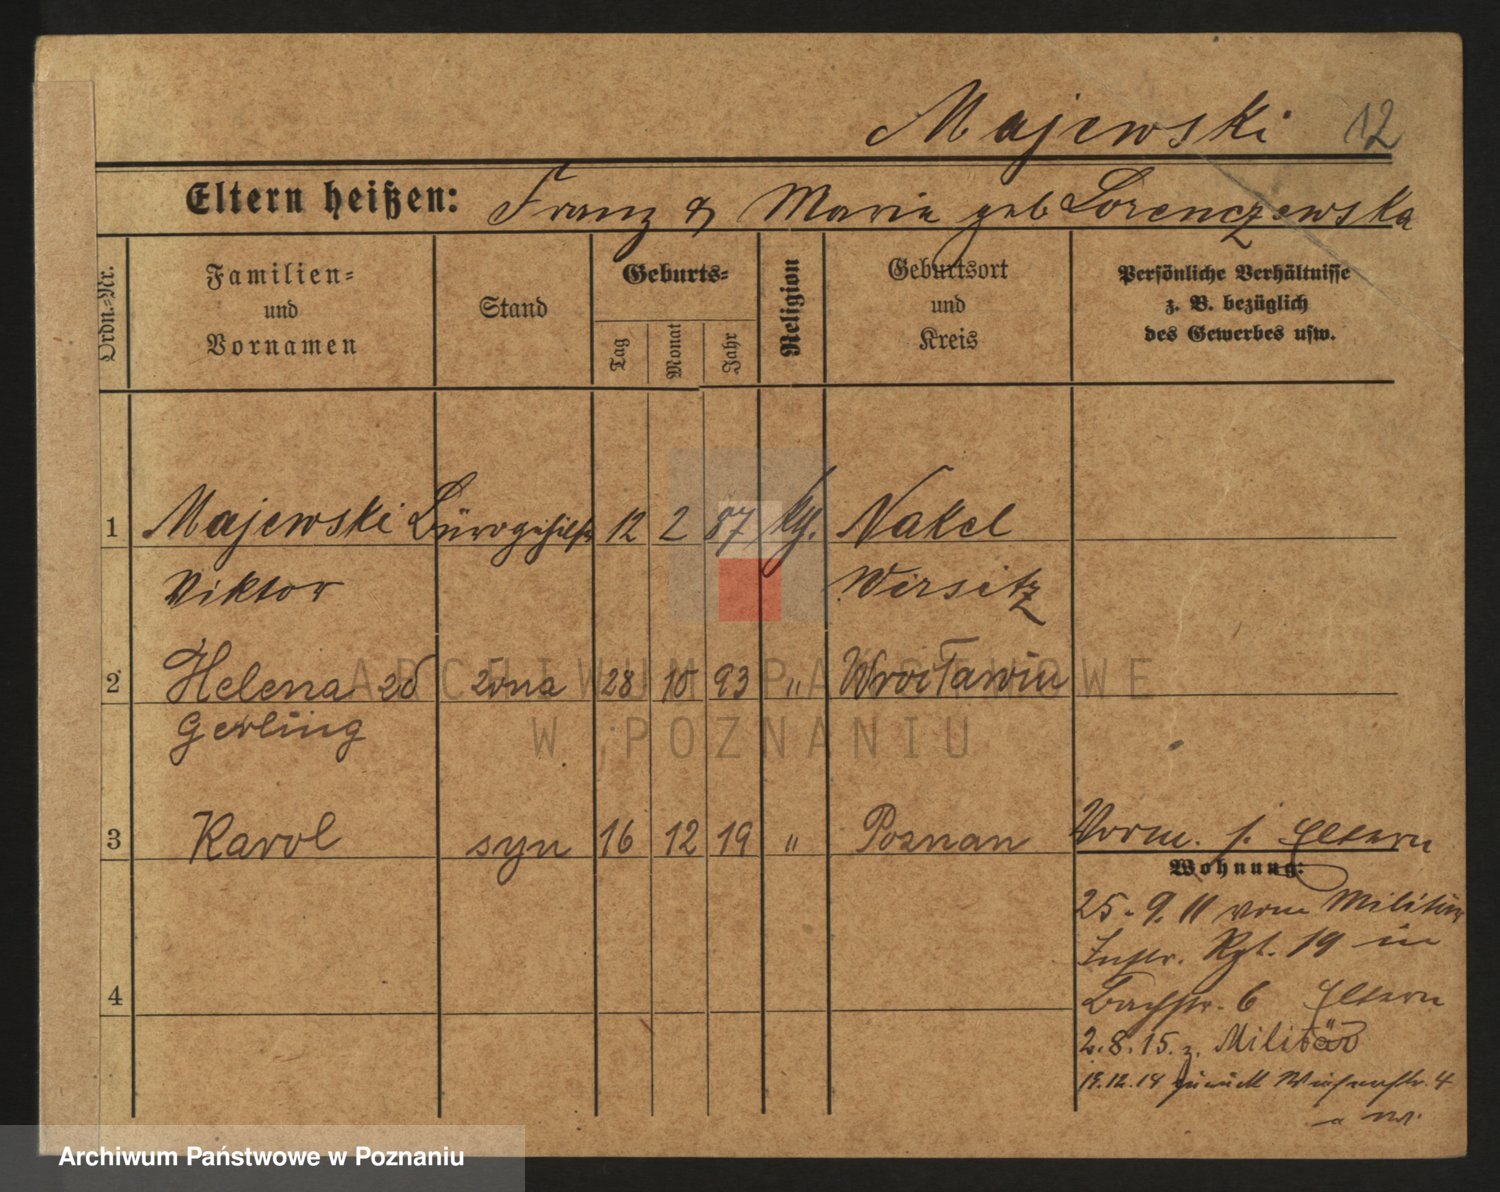 Majewski 12
Eltern heißen: Franz & Maria geb Lorenczewska
Ordn.-Nr.
Familien-
und
Vornamen
Stand
Geburts-
Tag
Monat
Jahr
Religion
Geburtsort
und
Kreis
Persönliche Verhältnisse
z. B. bezüglich
des Gewerbes usw.
1 Majewski Bürogehilfe 12 2 87 kg. Nakel
Viktor Wirsitz
2 Helena zd żona 28 10 93 " Wrocławiu
Gerling
3 Karol syn 16 12 19 " Poznan Vorm. s. Eltern
Wohnung:
25. 9. 11 vom Militär
Inftr. Rgt. 19 in
4 Bachstr. 6 Eltern
2. 8. 15. z. Militär
19.12.18 zurück 4
ARCHIWUM PAŃSTWOWE
W POZNANIU
Archiwum Państwowe w Poznaniu